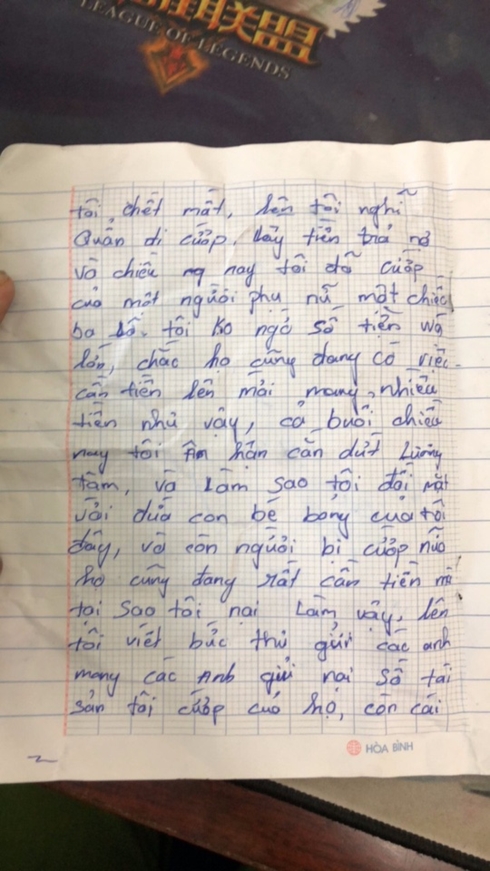 联盟
LEAGUE OF LEGENDS
tôi, chết mất, lên tôi nghĩ
Quẩn đi cướp. lấy tiền trả nợ
và chiều nay tôi đã cướp
của một người phụ nữ một chiếc
ba lô. tôi ko ngờ số tiền wá
lớn, chắc họ cũng đang có việc
cần tiền lên mới mang nhiều
tiền như vậy, cả buổi chiều
nay tôi Ân hận cắn dứt Lương
tâm, và Làm sao tôi đối mặt
với đứa con bé bỏng của tôi
đây, và còn người bị cướp nữa
họ cũng đang rất cần tiền mà
tại sao tôi nại Làm vậy, lên
tôi viết bức thư gửi các anh
mong các Anh gửi nại số tài
sản tôi cướp của họ, còn cái
HÒA BÌNH
2